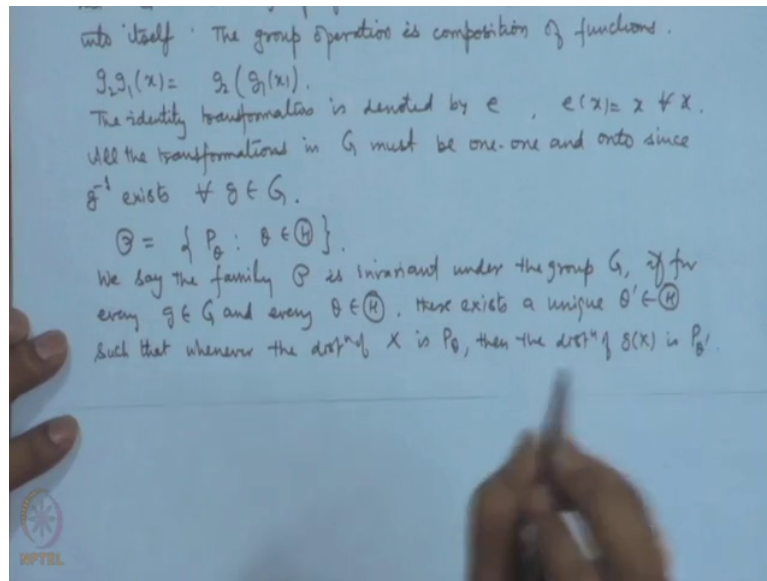 into itself. The group operation is composition of functions.
g₂g₁(x) = g₂(g₁(x)).
The identity transformation is denoted by e, e(x) = x ∀ x.
All the transformations in G must be one-one and onto since
g⁻¹ exists ∀ g ∈ G.
𝒫 = { P_θ : θ ∈ Ⓗ }.
We say the family 𝒫 is invariant under the group G, if for
every g ∈ G and every θ ∈ Ⓗ, there exists a unique θ' ∈ Ⓗ
such that whenever the distⁿ of X is P_θ, then the distⁿ of g(X) is P_θ'.
NPTEL